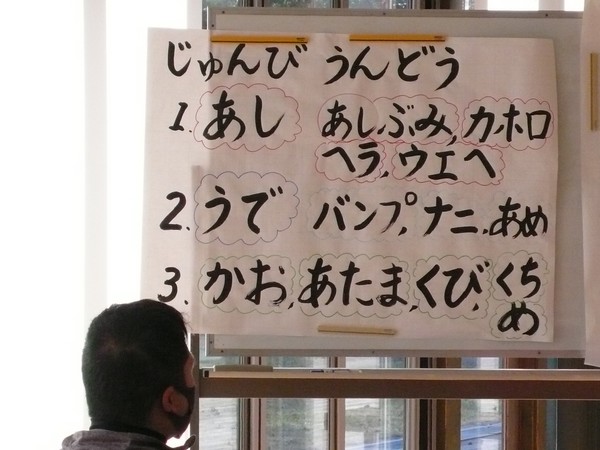 じゅんび うんどう
1. あし あしぶみ, カ,ホロ
ヘラ, ウエヘ
2. うで バンプ, ナニ, あめ
3. かお, あたま, くび, くち
め